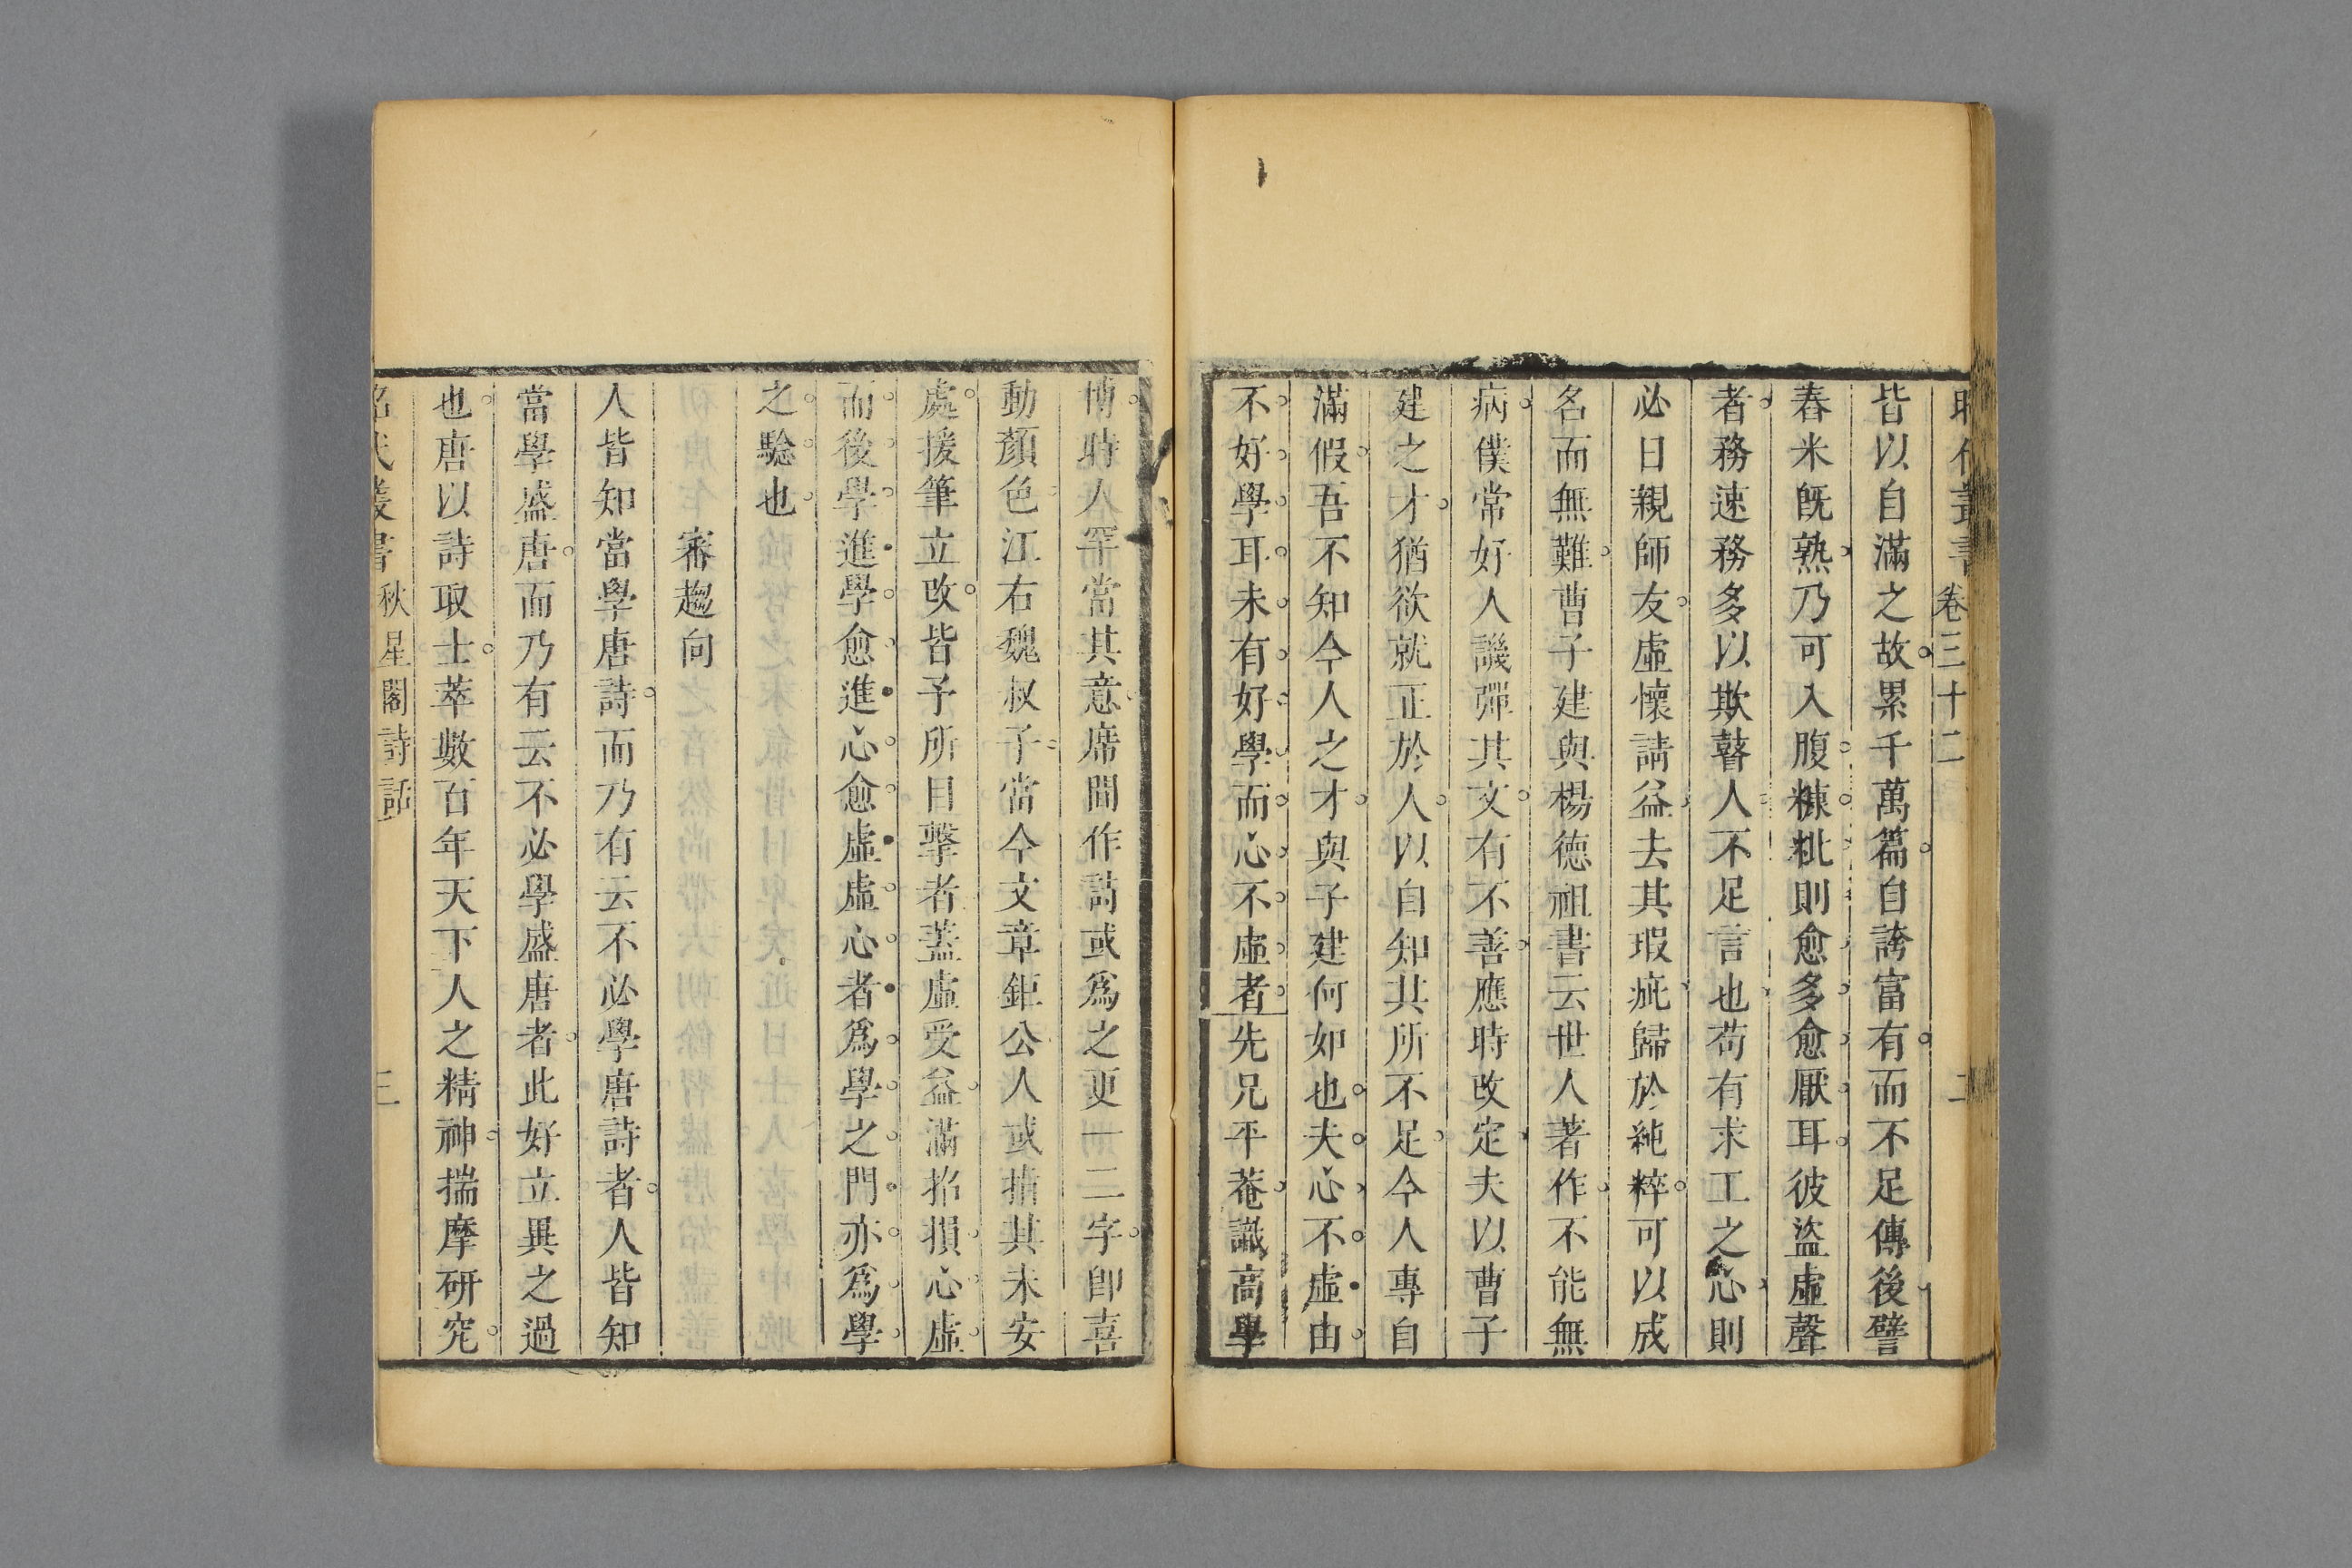 卷三十二 二
皆以自滿之故累千萬篇自誇富有而不足傳後譬
舂米旣熟乃可入腹糠粃則愈多愈厭耳彼盜虛聲
者務速務多以欺瞽人不足言也苟有求工之心則
必日親師友虛懷請益去其瑕疵歸於純粹可以成
名而無難曹子建與楊德祖書云世人著作不能無
病僕常好人譏彈其文有不善應時改定夫以曹子
建之才猶欲就正於人以自知其所不足今人專自
滿假吾不知今人之才與子建何如也夫心不虛由
不好學耳未有好學而心不虛者先兄平菴識高學
博時人罕當其意席間作詩或爲之更一二字卽喜
動顏色江右魏叔子當今文章鉅公人或指其未安
處援筆立改皆予所目擊者蓋虛受益滿招損心虛
而後學進學愈進心愈虛虛心者爲學之門亦爲學
之驗也
審趨向
人皆知當學唐詩而乃有云不必學唐詩者人皆知
當學盛唐而乃有云不必學盛唐者此好立異之過
也唐以詩取士萃數百年天下人之精神揣摩研究
書 秋星閣詩話 三